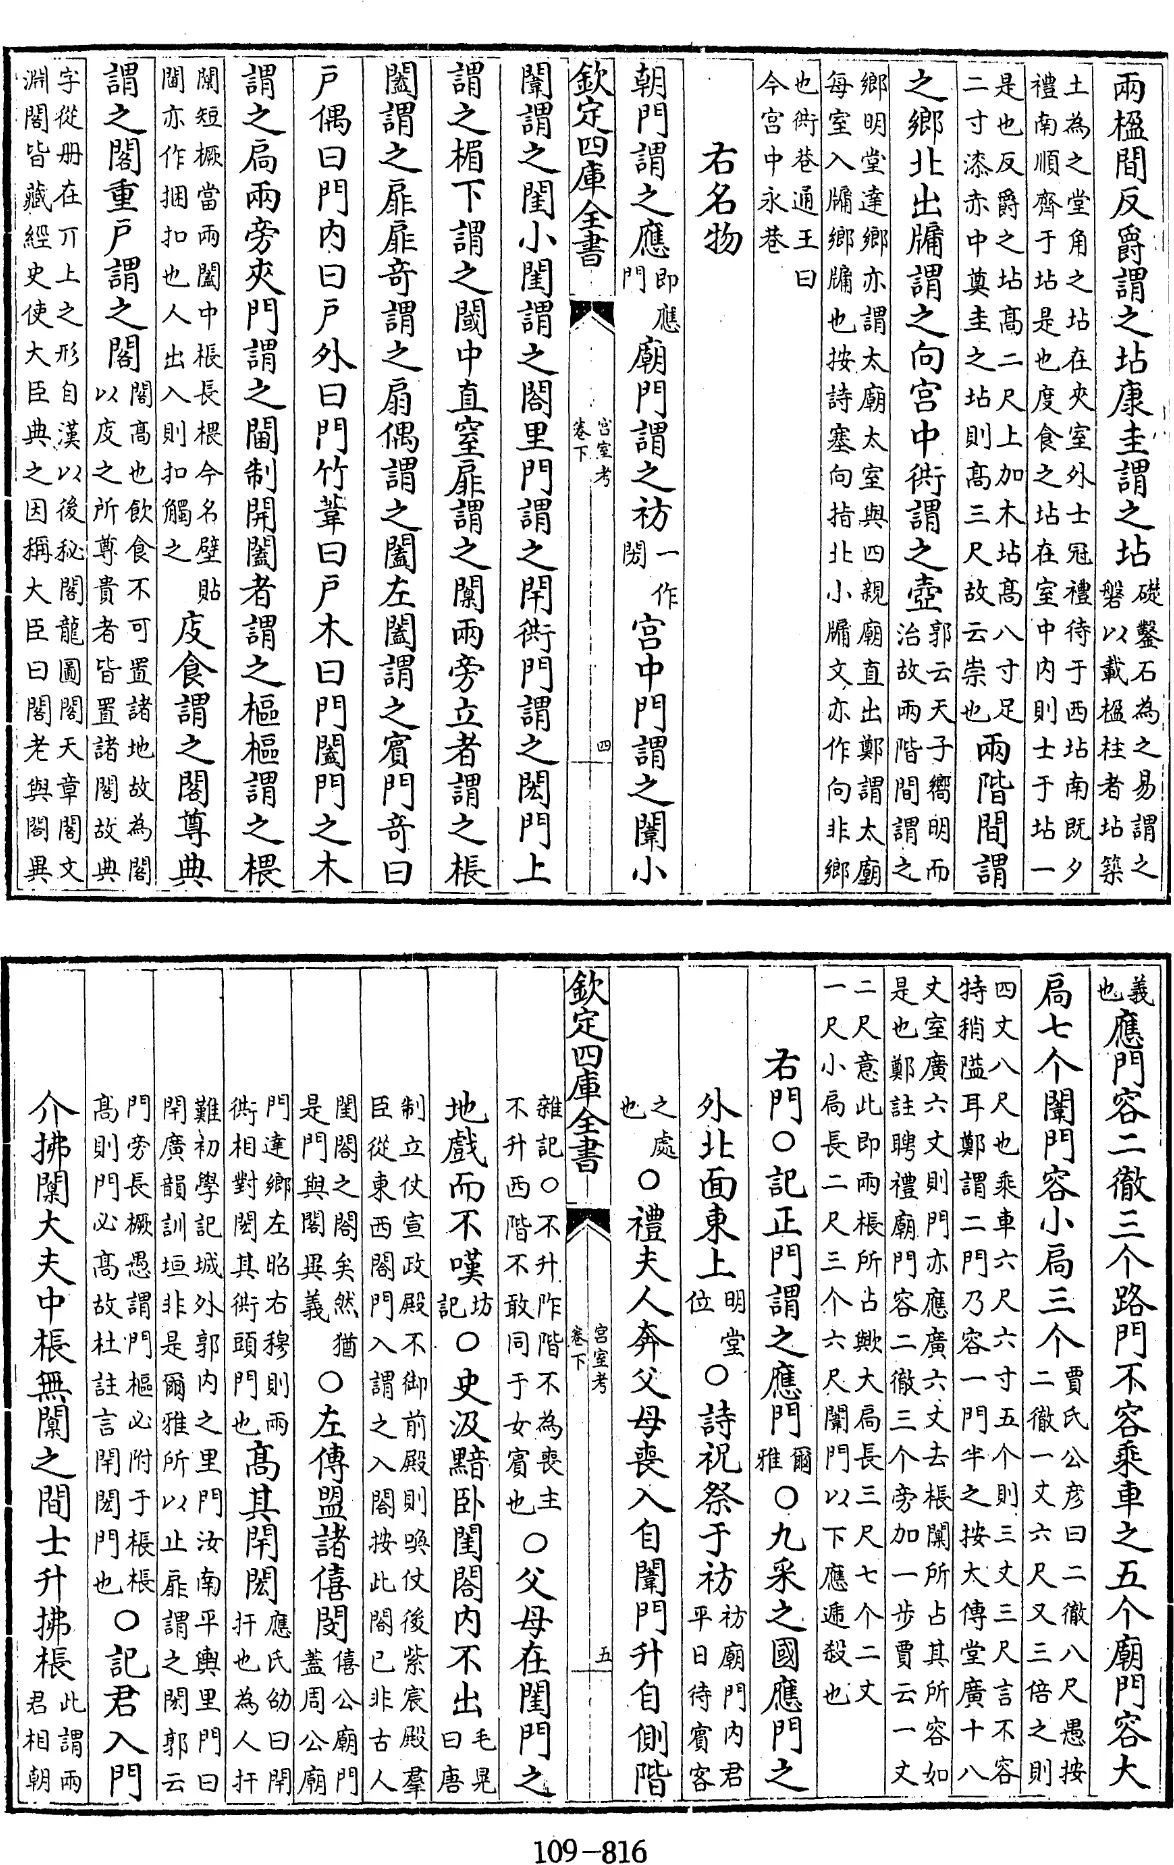 兩楹間反爵謂之坫康圭謂之坫礎鑿石為之易謂之磐以載楹柱者坫築
土為之堂角之坫在夾室外士冠禮待于西坫南既夕禮南順齊于坫是也度食之坫在室中内則士于坫一
是也反爵之坫高二尺上加木坫高八寸足二寸漆赤中奠圭之坫則高三尺故云崇也兩階間謂
之鄉北出牖謂之向宫中衖謂之壼郭云天子嚮明而治故兩階間謂之
鄉明堂達鄉亦謂太廟太室與四親廟直出鄭謂太廟每室入牖鄉牖也按詩塞向指北小牖文亦作向非鄉
也衖巷通王曰今宫中永巷
右名物
朝門謂之應即應門廟門謂之祊一作閍宫中門謂之闈小
欽定四庫全書 宫室考 卷下 四
闈謂之閨小閨謂之閤里門謂之閈衖門謂之閎門上
謂之楣下謂之閾中直窒扉謂之闑兩旁立者謂之棖
闔謂之扉扉奇謂之扇偶謂之闔左闔謂之賓門奇曰
戶偶曰門内曰戶外曰門竹葦曰戶木曰門闔門之木
謂之扃兩旁夾門謂之閫制開闔者謂之樞樞謂之椳
闑短橛當兩闔中棖長椳今名壁貼閫亦作捆扣也人出入則扣觸之庋食謂之閣尊典
謂之閣重戶謂之閤閣高也飲食不可置諸地故為閣以庋之所尊貴者皆置諸閣故典
字從册在丌上之形自漢以後秘閣龍圖閣天章閣文淵閣皆藏經史使大臣典之因稱大臣曰閣老與閤異
義也應門容二徹三个路門不容乘車之五个廟門容大
扃七个闈門容小扃三个賈氏公彦曰二徹八尺愚按二徹一丈六尺又三倍之則
四丈八尺也乘車六尺六寸五个則三丈三尺言不容特稍隘耳鄭謂二門乃容一門半之按大傳堂廣十八
丈室廣六丈則門亦應廣六丈去棖闑所占其所容如是也鄭註聘禮廟門容二徹三个旁加一步賈云一丈
二尺意此即兩棖所占歟大扃長三尺七个二丈一尺小扃長二尺三个六尺闈門以下應遞殺也
右門○記正門謂之應門爾雅○九采之國應門之
外北面東上明堂位○詩祝祭于祊祊廟門内君平日待賓客
之處也○禮夫人奔父母喪入自闈門升自側階
欽定四庫全書 宫室考 卷下 五
雜記○不升阼階不為喪主不升西階不敢同于女賓也○父母在閨門之
地戲而不嘆坊記○史汲黯卧閨閤内不出毛晃曰唐
制立仗宣政殿不御前殿則喚仗後紫宸殿羣臣從東西閤門入謂之入閤按此閤已非古人
閨閤之閤矣然猶是門與閣異義○左傳盟諸僖閎僖公廟門蓋周公廟
門達鄉左昭右穆則兩衖相對閎其衖頭門也高其閈閎應氏劭曰閈扞也為人扞
難初學記城外郭内之里門汝南平輿里門曰閈廣韻訓垣非是爾雅所以止扉謂之閎郭云
門旁長橛愚謂門樞必附于棖棖高則門必高故杜註言閈閎門也○記君入門
介拂闑大夫中棖無闑之間士升拂棖此謂兩君相朝
109-816